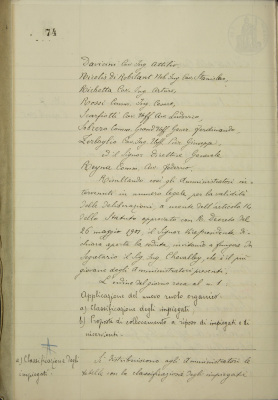 74
Daviani Cav. Ing. Attilio
Nicolis di Robilant Nob. Ing. Cav. Stanislao,
Racchetta Cav. Ing. Arturo,
Rossi Comm. Ing. Cosmo,
Scarfiotti Cav. Uff. Avv. Lodovico,
Scherzo Comm. Grand'Uff. Gener. Ferdinando
Zerboglio Cav. Ing. Uff. Cav. Giuseppe.
ed il Signor Direttore Generale
Regnoz Comm. Cav. Federico.
Risultando così gli Amministratori in-
tervenuti in numero legale per la validità
delle deliberazioni, a mente dell'articolo
dello Statuto approvato con R. Decreto del
26 maggio 1901, il Signor Vicepresidente di-
chiara aperta la seduta, invitando a fungere da
Segretario il Sig. Ing. Chevalley che è il più
giovane degli Amministratori presenti.
L'ordine del giorno reca al n. 1.
Applicazione del nuovo ruolo organico:
a) Classificazione degli impiegati
b) Proposte di collocamento a riposo di impiegati e di
inservienti.
a) Classificazione degli
impiegati.
Si distribuiscono agli Amministratori le
tabelle con la classificazione degli impiegati